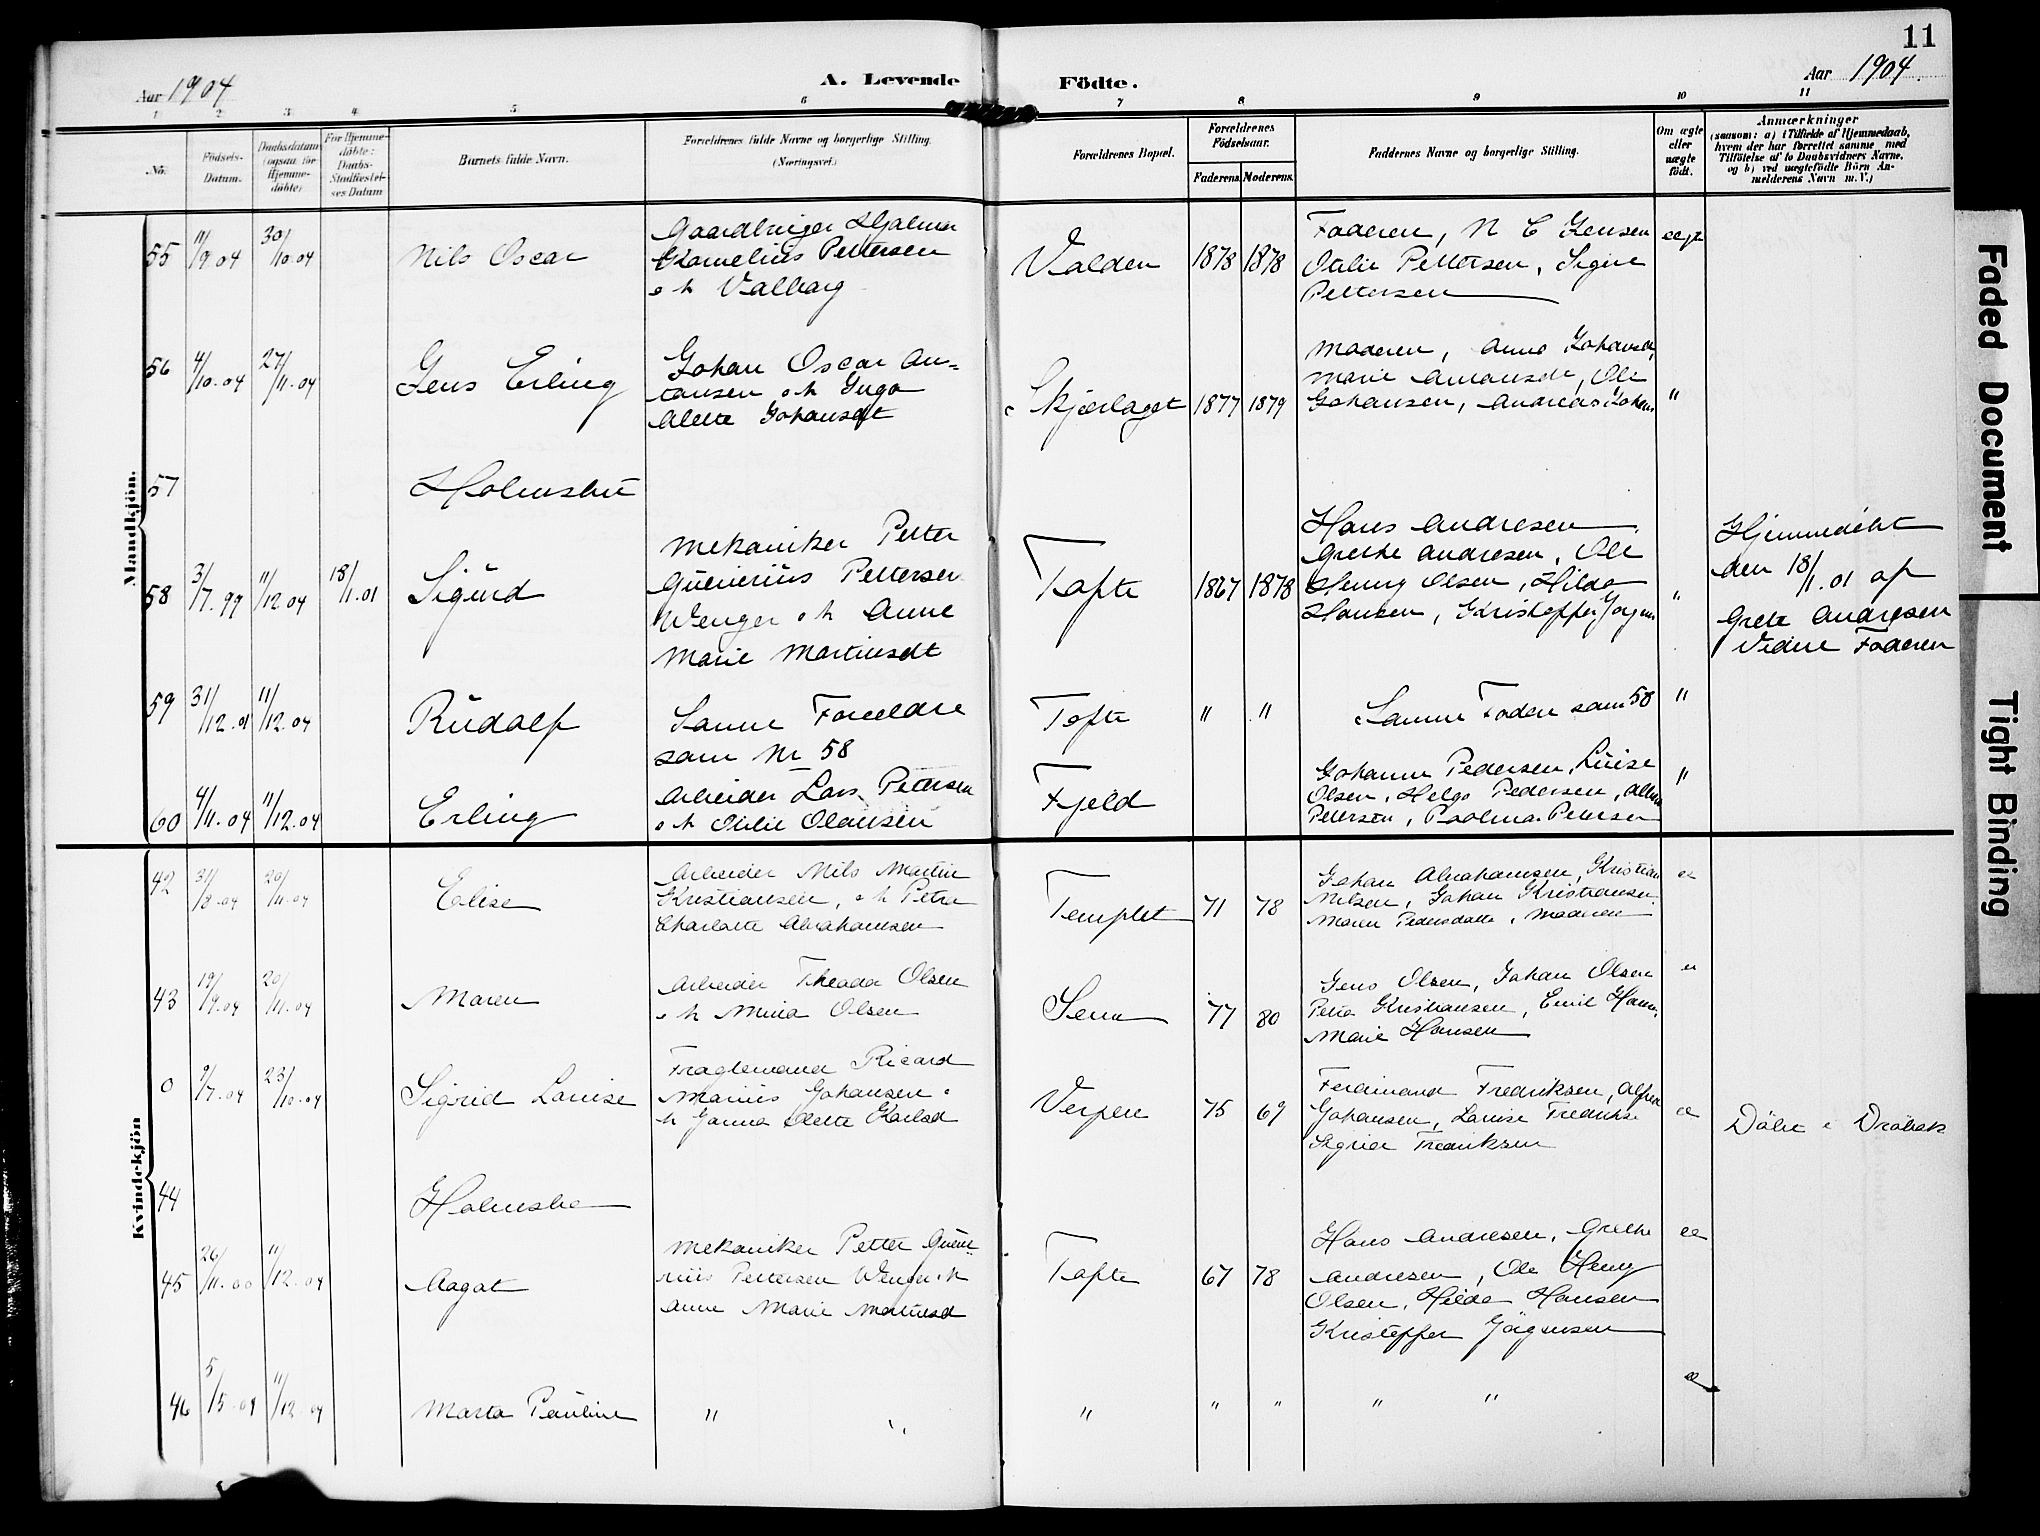 11
Aar 1904
A. Levende Födte.
Aar 1904.
1 2 3 4 5 6 7 8 9 10 11
No.
Födsels-
Datum.
Daabsdatum
(ogsaa for
Hjemme-
döbte)
For Hjemme-
döbte:
Daabs-
Stadfæstel-
ses Datum
Barnets fulde Navn.
Forældrenes fulde Navne og borgerlige Stilling.
(Næringsvei.)
Forældrenes Bopæl.
Forældrenes
Födselsaar.
Faderens. Moderens.
Faddernes Navne og borgerlige Stilling.
Om ægte
eller
uægte
födt.
Anmærkninger
(saasom: a) i Tilfælde af Hjemmedaab,
hvem der har forrettet samme med
Tilföielse af to Daabsvidners Navne,
og b) ved uægtefödte Börn An-
melderens Navn m. V.)
Mandkjön.
55
11/9 04
30/10.04
Nils Oscar
Gaardbruger Hjalmar
Kornelius Pettersen
o h Valborg
Valden
1878 1878
Faderen, N C Jensen
Otilie Pettersen, Signe
Pettersen
ægte
56
4/10.04
27/11.04
Jens Erling
Johan Oscar An-
tonsen o h Inga
Alette Johansdt
Skjærlaget
1877 1879
Moderen, Anna Johansd,
Marie Antonsdt, Ole
Johansen, Andreas Johans
"
57
Holmsbu
58
3/7.99
11/12 04
18/1.01
Sigurd
Mekaniker Petter
Gunerius Pettersen
Wenger o h Anne
Marie Martinsdt
Tofte
1867 1878
Hans Andresen
Grethe Andresen, Ole
Henry Olsen, Hilda
Hansen, Kristoffer Jörgens
"
Hjemmedöbt
den 18/1.01 af
Grete Andresen
Vidne Faderen
59
31/12.01
11/12.04
Rudolf
Samme Forældre
som Nr 58
Tofte
" "
Samme Faddere som 58
"
60
4/11.04
11/12.04
Erling
Arbeider Lars Petersen
o h Otilie Olausen
Fjeld
Johanne Pedersen, Luise
Olsen, Helga Pedersen,
Petersen, Petersen
"
Kvindekjön
42
31/8.04
20/11.04
Elise
Arbeider Nils Martin
Kristiansen, o h Petra
Charlotte Abrahamsen
Templet
71 78
Johan Abrahamsen, Kristian
Nilsen, Johan Kristiansen
Maren Pedersdatte, Moderen
æ
43
19/9.04
20/11.04
Maren
Arbeider Theodor Olsen
o h Mina Olsen
77 80
Jens Olsen, Johan Olsen
Petra Kristiansen, Emil Hans.
Marie Hansen
0
9/7.04
23/10.04
Sigrid Louise
Fragtemand Ricard
Marius Johansen o
h Janna Olette Karlsd
Verpen
75 69
Ferdinand Fredriksen, Alfred
Johansen, Louise Fredrikse
Sigrid Fredriksen
æ
Döbt i Dröbak
44
Holmsbu
45
26/11.00
11/12.04
Aagot
Mekaniker Petter Gune-
rius Pettersen Wenger o h
Anne Marie Martinsd
Tofte
67 78
Hans Andresen, Grethe
Andresen, Ole Henry
Olsen, Hilda Hansen
Kristoffer Jörgensen
æ
46
5/5.04
11/12.04
Marta Pauline
" "
" " " " "
æ
Faded Document
Tight Binding